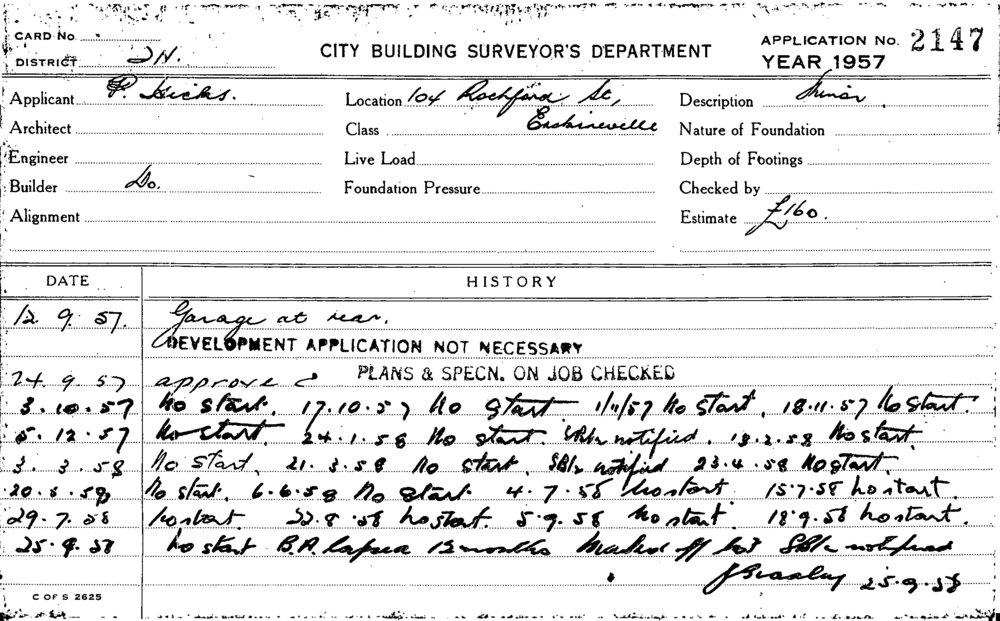 CARD No
DISTRICT 2N.
CITY BUILDING SURVEYOR'S DEPARTMENT
APPLICATION No. 2147
YEAR 1957
Applicant P. Hicks. Location 104 Rochford St, Erskineville Description Minor.
Architect Class Nature of Foundation
Engineer Live Load Depth of Footings
Builder Do. Foundation Pressure Checked by
Alignment Estimate £160.
DATE HISTORY
12. 9. 57. Garage at rear.
DEVELOPMENT APPLICATION NOT NECESSARY
24. 9. 57 approve PLANS & SPECN. ON JOB CHECKED
3. 10. 57 No start. 17.10.57 No start 1/11/57 No start. 18.11.57 No start.
5. 12. 57 No start. 24.1.58 No start. notified. 13.2.58 No start.
3. 3. 58 No start. 21.3.58 No start. notified 23.4.58 No start.
20. 5. 58 No start. 6.6.58 No start. 4.7.58 No start. 15.7.58 No start.
29. 7. 58 No start. 22.8.58 No start. 5.9.58 No start. 18.9.58 No start.
25. 9. 58 No start B.A. lapsed 12 months Marked off list notified
25.9.58
C OF S 2625